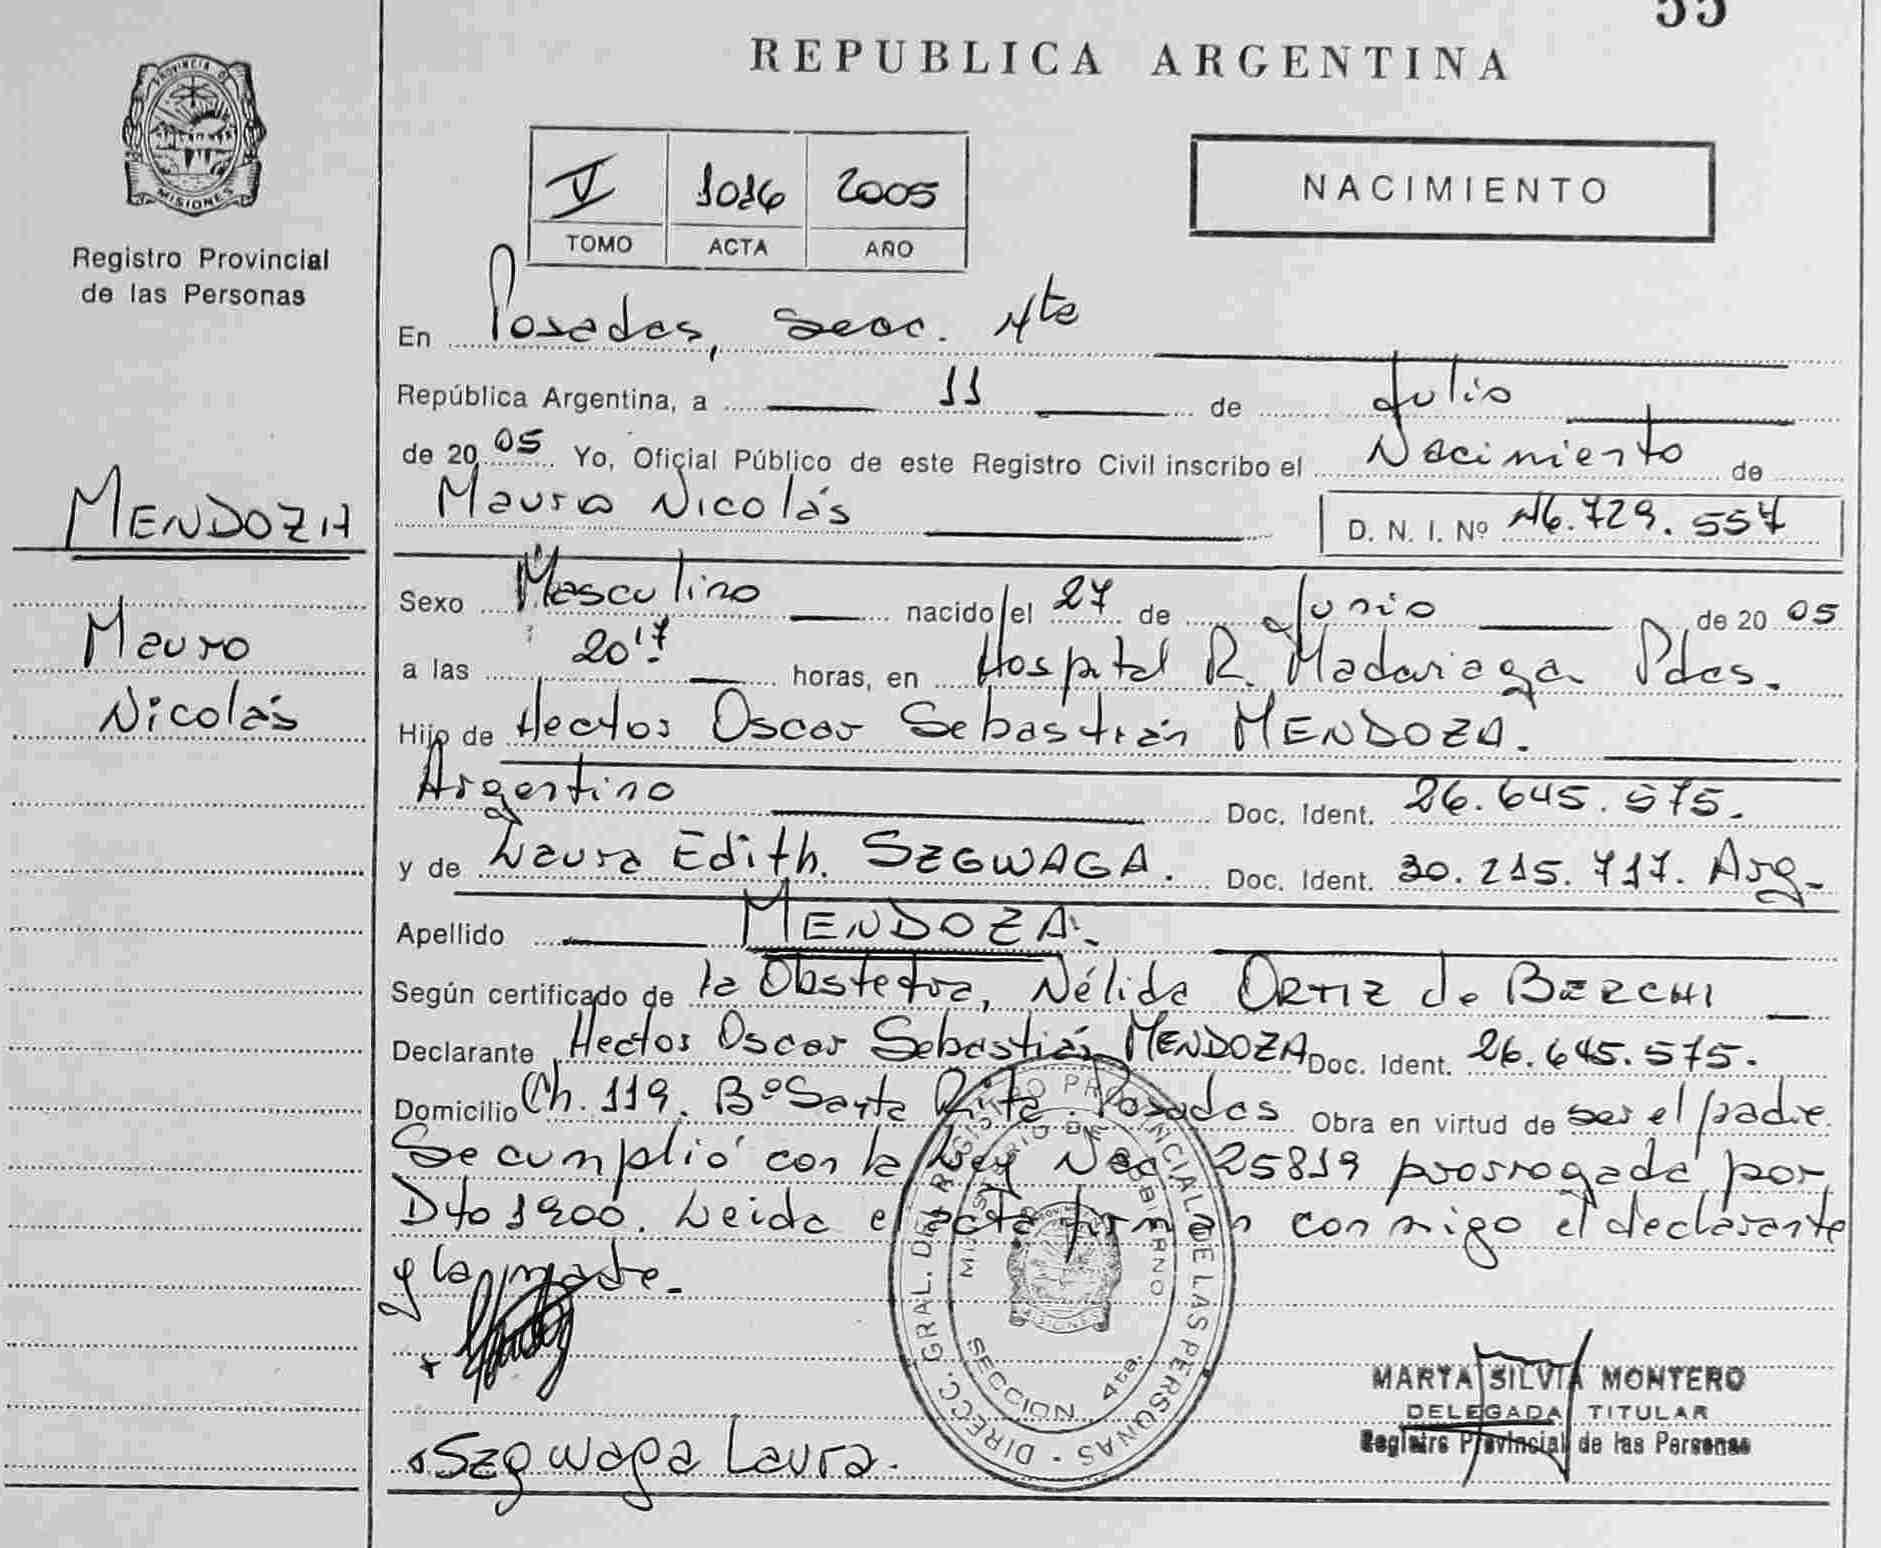 55
REPUBLICA ARGENTINA
PROVINCIA DE
MISIONES
Registro Provincial
de las Personas
V 1016 2005
TOMO ACTA AÑO
NACIMIENTO
En Posadas, Secc. 4ta
República Argentina, a 11 de Julio
de 2005 Yo, Oficial Público de este Registro Civil inscribo el Nacimiento de
Mauro Nicolás D. N. I. Nº 46.729.557
MENDOZA
Mauro
Nicolás
Sexo Masculino nacido el 27 de Junio de 2005
a las 20'17 horas, en Hospital R. Madariaga Pdas.
Hijo de Hector Oscar Sebastián MENDOZA.
Argentino Doc. Ident. 26.645.575.
y de Laura Edith. SZGWAGA. Doc. Ident. 30.215.717. Arg.
Apellido MENDOZA.
Según certificado de la Obstetra, Nélida ORTIZ de BERCHI
Declarante Hector Oscar Sebastián MENDOZA Doc. Ident. 26.645.575.
Domicilio Ch. 119. Bº Santa Rita. Posadas Obra en virtud de ser el padre.
Se cumplió con la Ley Nac. 25819 prorrogada por
Dto 1900. Leida el acta firman conmigo el declarante
y la madre.
Szgwaga Laura.
DIRECC. GRAL. DEL REGISTRO PROVINCIAL DE LAS PERSONAS
MINISTERIO DE GOBIERNO
MISIONES
SECCION 4ta.
MARTA SILVIA MONTERO
DELEGADA TITULAR
Registro Provincial de las Personas